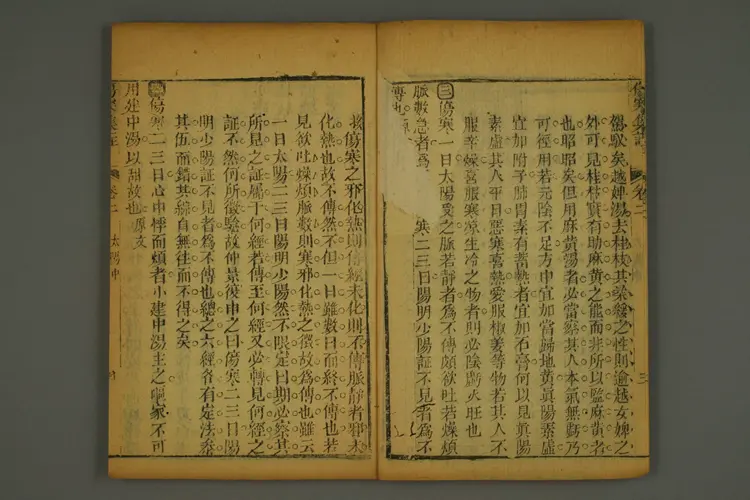 傷寒集註 卷二 三
駕馭矣越婢湯去桂枝其柔緩之性則逾越女婢之
外可見桂枝實有助麻黃之能而非所以監麻黃者
也昭昭矣但用麻黃湯者必當察其人本氣無虧乃
可徑用若元陰不足方中宜加當歸地黃眞陽素虛
宜加附子肺胃素有蓄熱者宜加石膏何以見眞陽
素虛其人平日惡寒喜熱愛服椒姜等物若其人不
服辛燥喜服寒凉生冷之物者則必陰虧火旺也
三傷寒一日太陽受之脈若靜者爲不傳頗欲吐若燥煩
脈數急者爲 寒二三日陽明少陽証不見者爲不
傳也原
傷寒之邪化熱則傳經未化則不傳脈靜者邪未
化熱也故不傳然不但一日雖數日而終不傳也若
見欲吐燥煩脈數則寒邪化熱之徵故爲傳也雖云
一日太陽二三日陽明少陽然不限定日期必察其
所見之証屬于何經若傳至何經又必轉見何經之
証不然何所徵驗故仲景復申之曰傷寒二三日陽
明少陽証不見者爲不傳也總之六經各有定法叅
其伍而錯其綜自無往而不得之矣
傷寒二三日心中悸而煩者小建中湯主之嘔家不可
用建中湯以甜故也原文
傷寒集註 卷二 太陽中